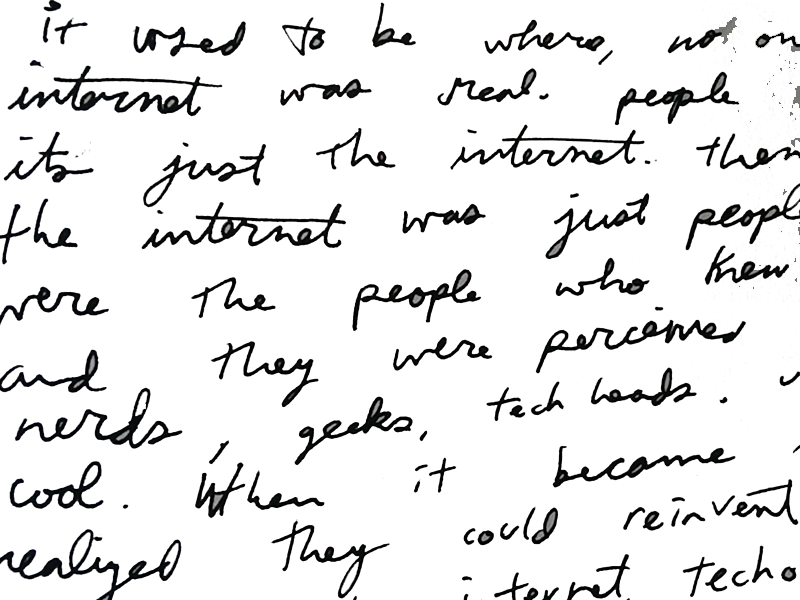 it used to be where, no on
internet was real. people
its just the internet. then
the internet was just peopl
were the people who knew
and they were perceived
nerds, geeks, tech heads.
cool. When it became
realized they could reinvent
internet techo